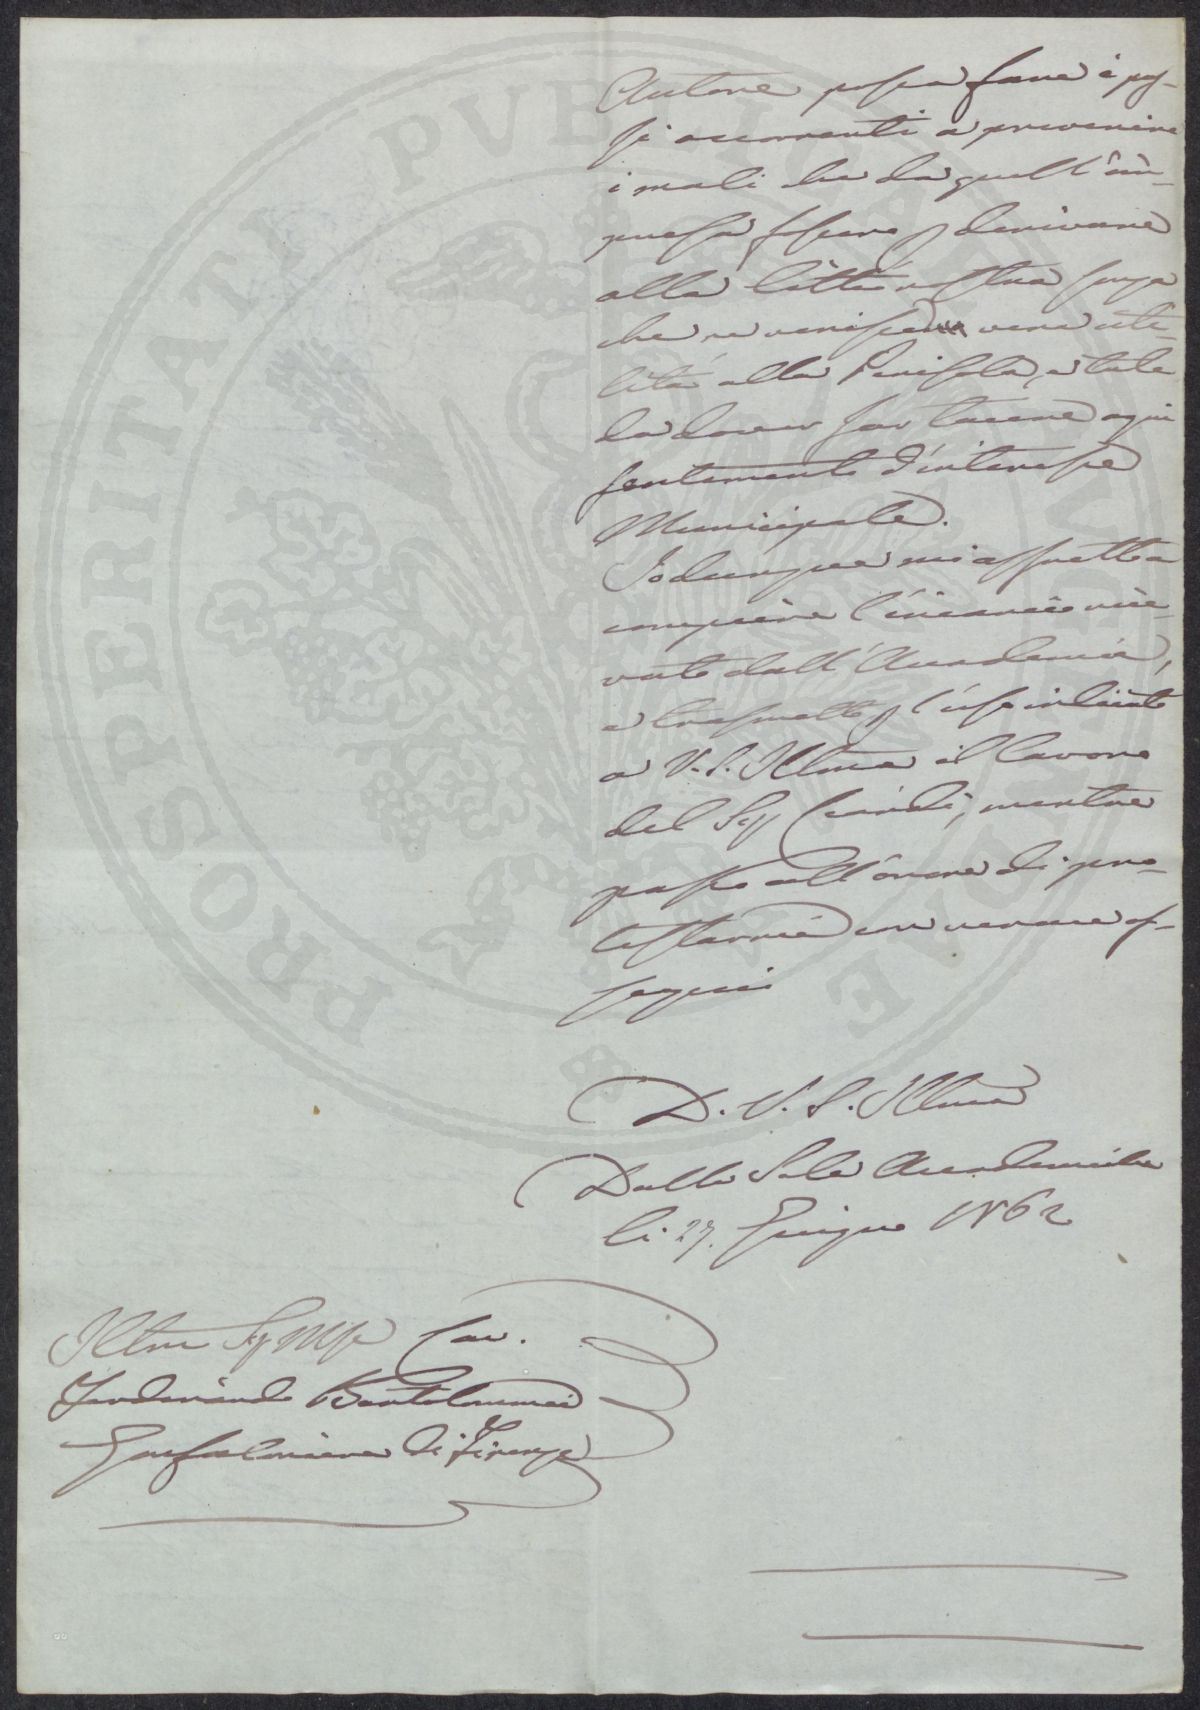 Autore possa fare i pas-
si occorrenti a prevenire
i mali che da quell'im-
presa fossero p derivare
alla Città nostra senza
che ne venisse vera uti-
lità alla Penisola, e tale
da dover far tacere ogni
sentimento d'interesse
Municipale.
Io dunque mi affretto a
compiere l'incarico rice-
vuto dall'Accademia,
e trasmetto p l'uso indicato
a V. S. Illma il lavoro
del Sig mentre
passo all'onore di pro-
testarmi con verace os-
sequio
D. V. S. Illma
Dalle Sale Accademiche
li 27. Giugno 1862
Illmo Sig March Cav.
Ferdinando Bartolommei
Gonfaloniere di Firenze
PROSPERITATI PUBLICAE AUGENDAE